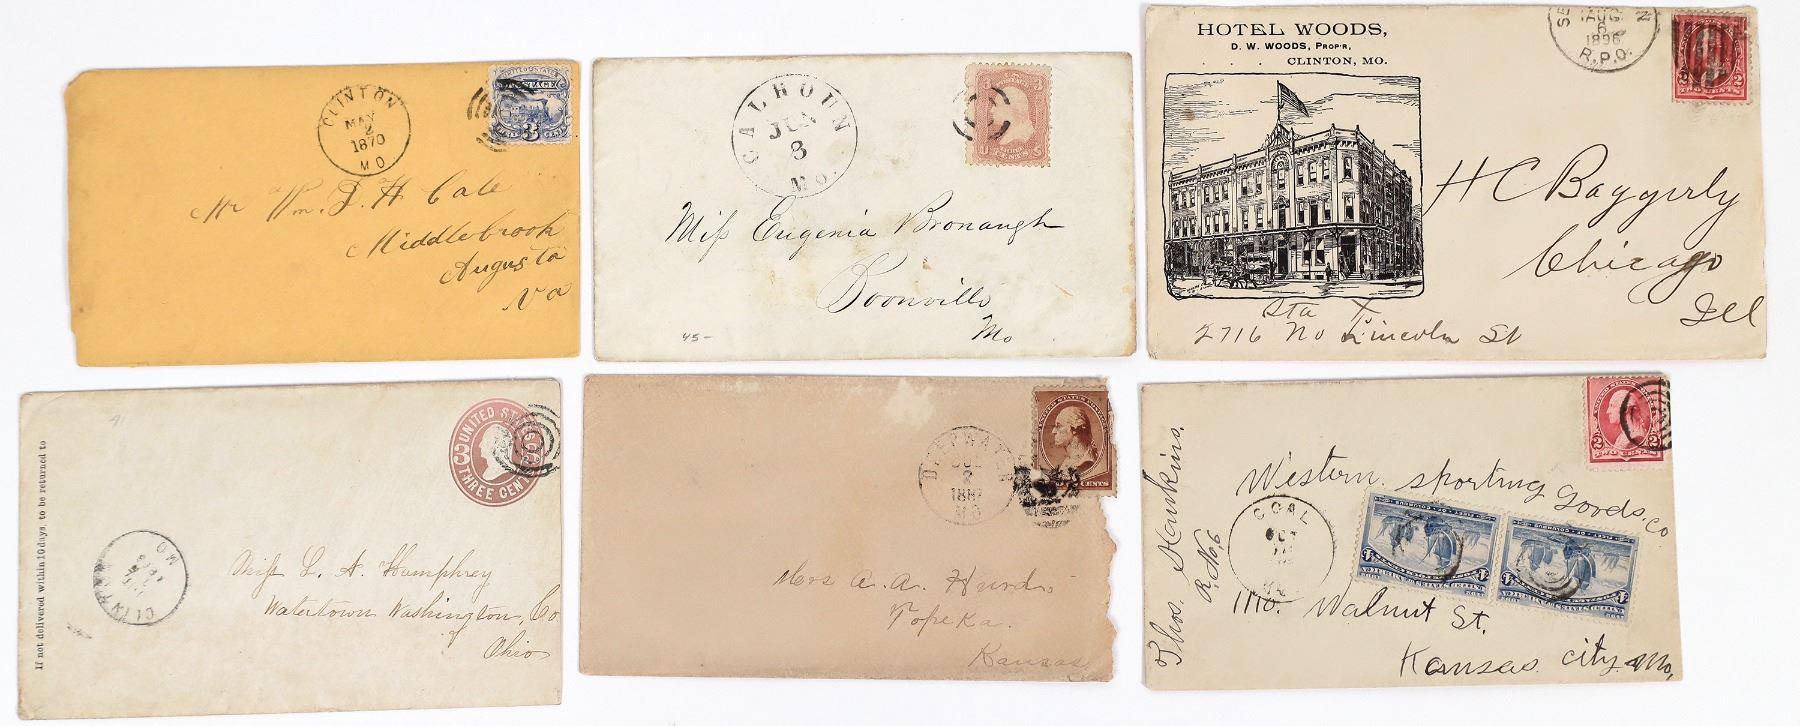 CLINTON
MAY
2
1870
MO
UNITED STATES
POSTAGE
3
Mr Wm. D. H. Cale
Middlebrook
Augusta
Va
CALHOUN
JUN
3
Mo.
U.S.
3 CENTS
Miss Eugenia Bronaugh
Boonville
Mo
45-
HOTEL WOODS,
D. W. WOODS, PROP'R,
CLINTON, MO.
AUG
6
1896
R.P.O.
2 2
TWO CENTS
H C Baggerly
Chicago
Ill
Sta X
2716 No Lincoln St
41
If not delivered within 10 days, to be returned to
UNITED STATES
THREE CENTS
CLINTON
MO
Miss L. A. Humphrey
Watertown Washington, Co.
Ohio
UNITED STATES
CENTS
2
188
MO
Mrs A. A. Hurd
Topeka.
Kansas
Thos. Hankins.
R. No, 6
2 2
TWO CENTS
COAL
OCT
MO
UNITED STATES OF AMERICA
UNITED STATES OF AMERICA
Western sporting Goods, Co
1110. Walnut St.
Kansas City, Mo,